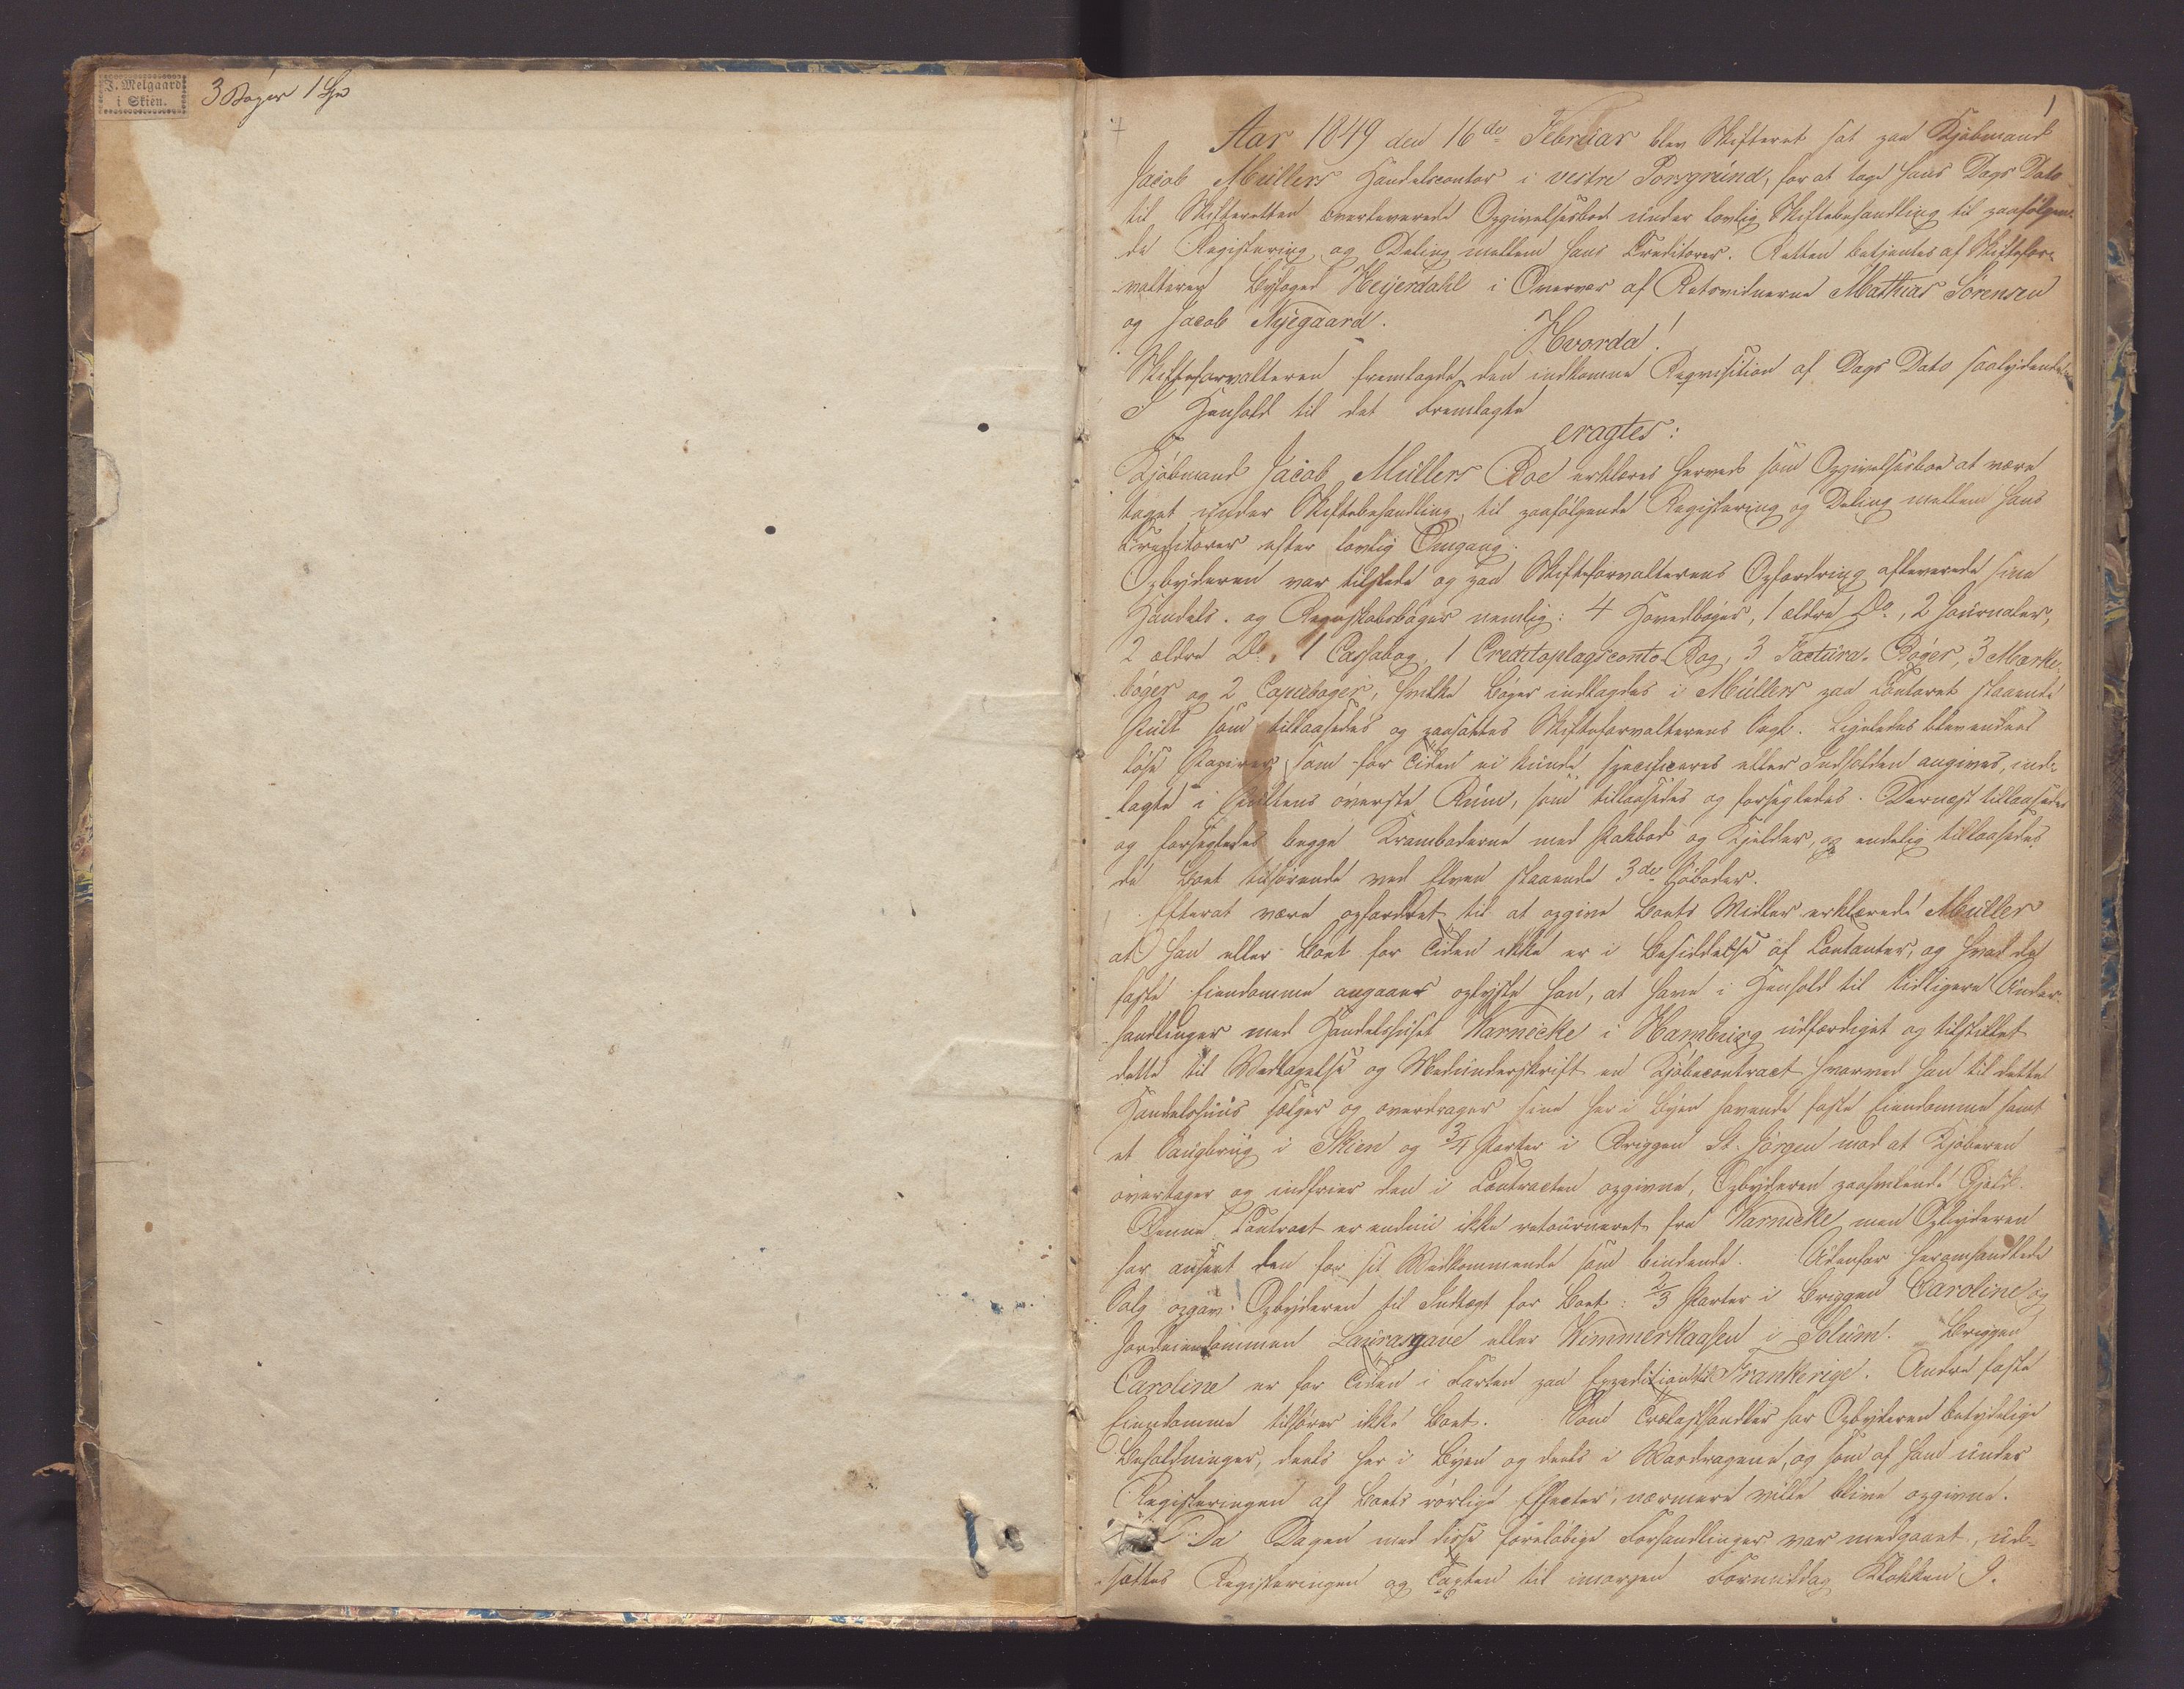 J. Melgaard
i Skien.
3 Bøger 1 Sp
1
Aar 1849 den 16de Februar blev Skifteret sat paa Kjøbmand
Jacob Müllers Handelscontor i vestre Porsgrund, for at tage hans Dags Dato
til Skifteretten overleverede Opgivelsesbod under lovlig Skiftebehandling til paafølgen-
de Registering og Deling mellem hans Creditorer. Retten betjentes af Skiftefor-
valteren Byfoged Heijerdahl i Overvær af Retsvidnerne Mathias Sörensen
og Jacob Nÿegaard.
Hvorda!
Skifteforvalteren fremlagde den indkomne Reqvisition af Dags Dato saalydende
I Henhold til det Fremlagte
eragtes:
Kjøbmand Jacob Müllers Boe erklæres herved som Opgivelsesboe at være
taget under Skiftebehandling til paafølgende Registering og Deling mellem hans
Creditorer efter lovlig Omgang.
Opbyderen var tilstede og paa Skifteforvalterens Opfordring afleverede sine
Handels- og Regnskabsbøger nemlig: 4 Hovedbøger, 1 ældre Do, 2 Journaler,
2 ældre Do, 1 Cassabog, 1 Creditoplagsconto-Bog, 3 Factura-Bøger, 3 Mærke-
bøger og 2 Copiebøger, hvilke Bøger indlagdes i Müllers paa Contoret staaende
Pult som tillaasedes og paasattes Skifteforvalterens Segl. Ligeledes bleve endeel
løse Papirer, som for Tiden ei kunde specificeres eller Indholden angives, ind-
lagte i Pultens øverste Rum, som tillaasedes og forsegledes. Dernæst tillaasedes
og forsegledes begge Kramboderne med Pakbod og Kjelder, og endelig tillaasedes
de Boet tilhørende ved Elven staaende 3de Søboder.
Efterat være opfordret til at opgive Boets Midler erklærede Müller
at han eller Boet for Tiden ikke er i Besiddelse af Contanter, og hvad de
faste Eiendomme angaaer oplyste han, at have i Henhold til tidligere Under-
handlinger med Handelshuset Warnecke i Hamburg udfærdiget og tilstillet
dette til Vedtagelse og Medunderskrift en Kjøbecontract hvorved han til dette
Handelshuus sælger og overdrager sine her i Byen havende faste Eiendomme samt
et Saugbrug i Skien og 3/4 Parter i Briggen St. Jörgen mod at Kjøberen
overtager og indfrier den i Contracten opgivne, Opbyderen paahvilende Gjæld.
Denne Contract er endnu ikke retourneret fra Warnecke, men Opbyderen
har anseet den for sit Vedkommende som bindende. Udenfor heromhandlede
Salg opgav Opbyderen til Indtægt for Boet: 2/3 Parter i Briggen Caroline og
Jordeiendommen Laurasgave eller Himmerkaasen i Solum. Briggen
Caroline er for Tiden i Farten paa Expedition til Frankerige. Andre faste
Eiendomme tilhører ikke Boet. Som Trælasthandler har Opbyderen betydelige
Beholdninger, deels her i Byen og deels i Vasdragene, og som af ham under
Registeringen af Boets rørlige Effecter, nærmere ville blive opgivne.
Da Dagen med disse foreløbige Forhandlinger var medgaaet, ud-
sattes Registeringen og Taxten til imorgen Formiddag Klokken 9.